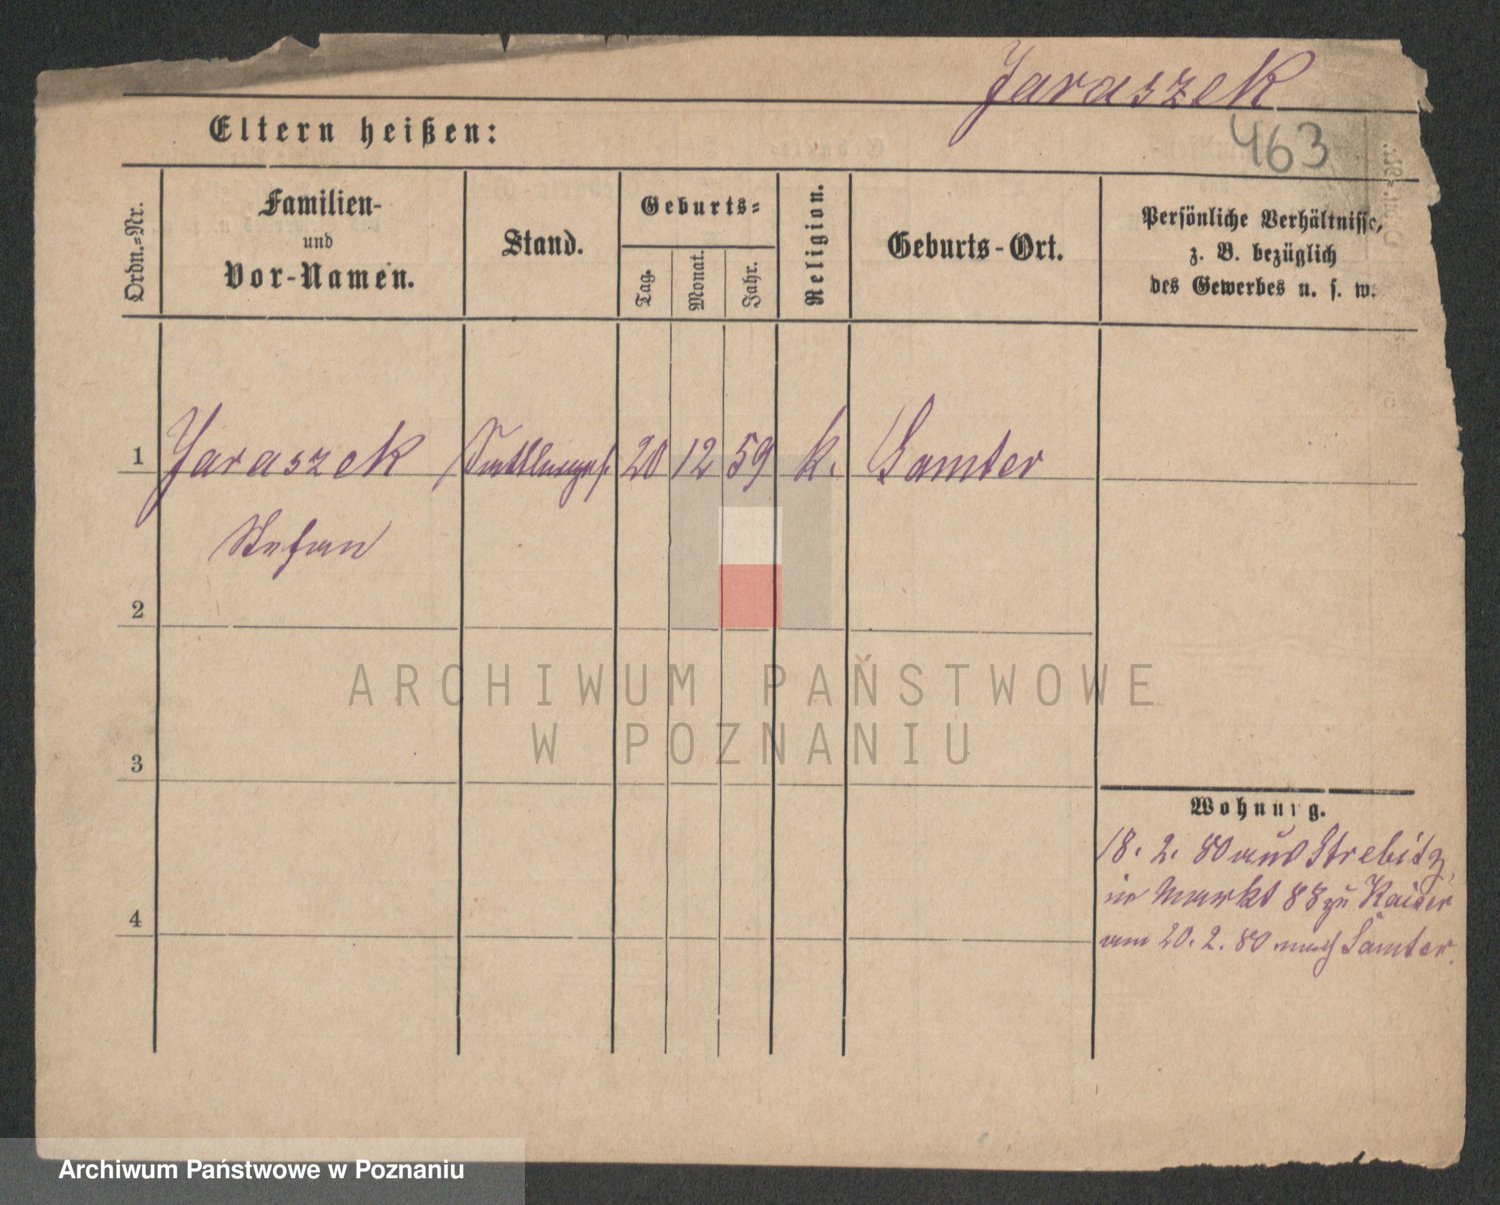 Jaraszek
463
Eltern heißen:
Ordn.-Nr.
Familien-
und
Vor-Namen.
Stand.
Geburts-
Tag.
Monat.
Jahr.
Religion.
Geburts-Ort.
Persönliche Verhältnisse,
z. B. bezüglich
des Gewerbes u. s. w.
1 Jaraszek 20 12 59 k. Samter
Stefan
2
3
4
Wohnung.
18. 2. 80 aus Strebitz,
in Markt 88 zu Kaiser
am 20. 2. 80 nach Samter.
ARCHIWUM PAŃSTWOWE
W POZNANIU
Archiwum Państwowe w Poznaniu